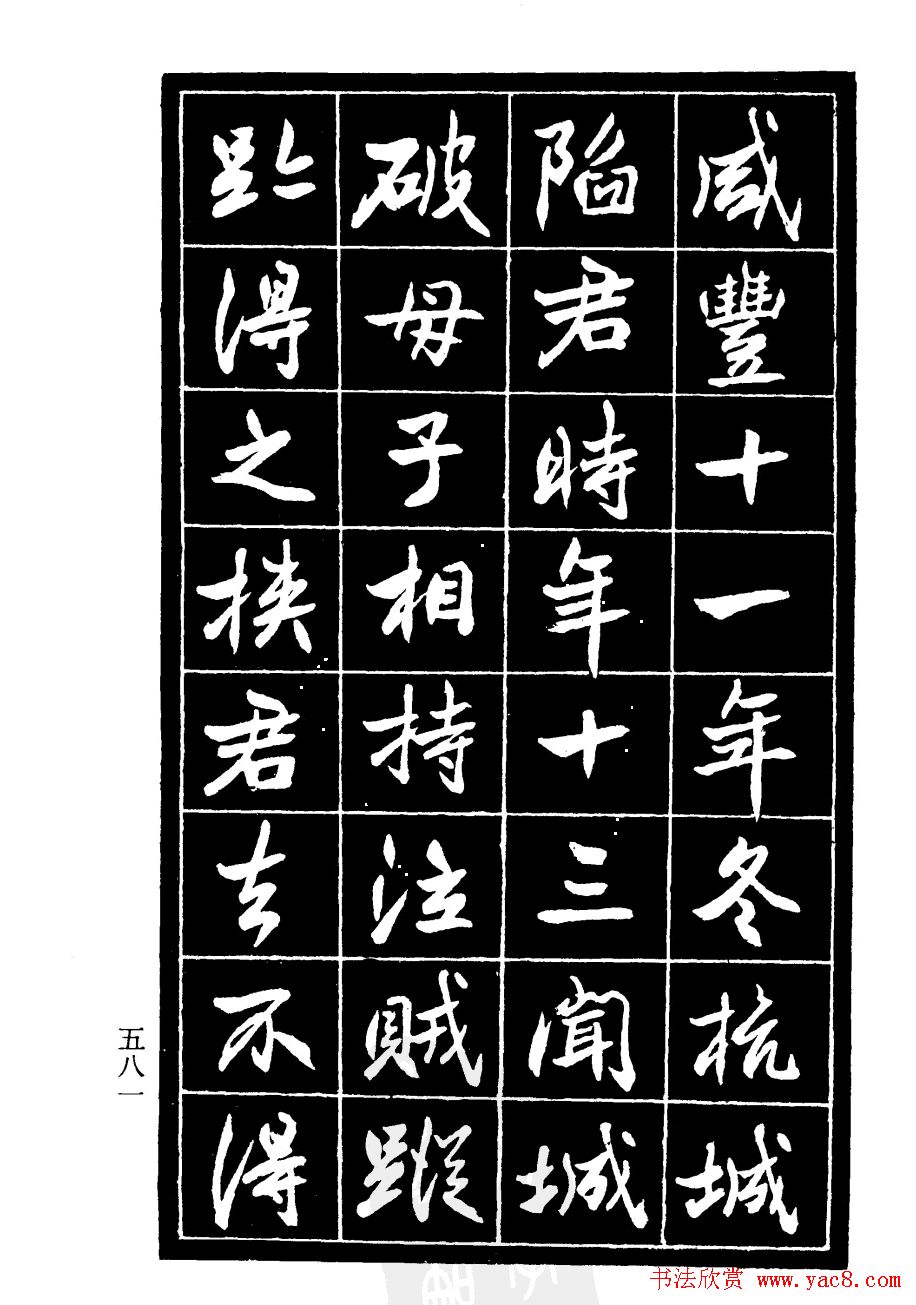 咸豐十一年冬杭城
陷君時年十三聞城
破母子相持泣賊蹤
跡得之挾君去不得
五八一
书法欣赏 www.yac8.com